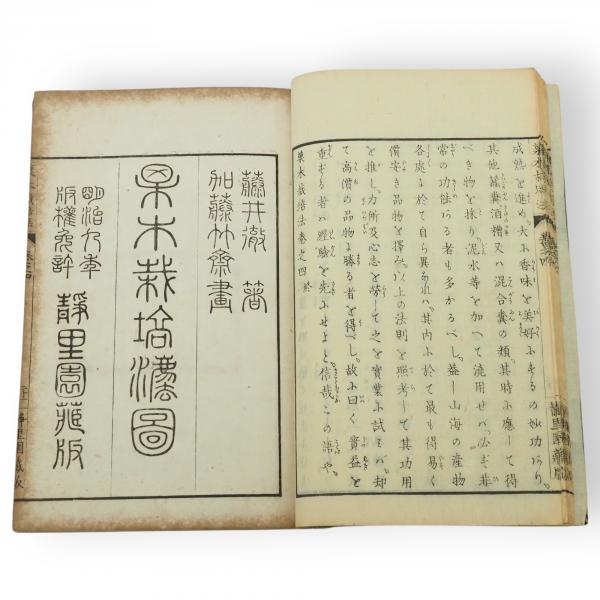 成熟を進め、大に香味を美好にするの妙功あり。
其他蠶糞酒糟又ハ混合糞の類其時に應して得
べき物を採り、泥水等を加へて澆用せバ、必ず非
常の功徃る者も多かるべし。蓋し山海の産物
各處に於て自ら異なれバ、其内に於て最も得易く
價安き品物を擇み、以上の法則を照考して其功用
を推し、力所及心志を勞して之を實業に試ミバ、却
て高價の品物に勝る者を得べし。故に曰く實益を
重ずる者ハ經驗を先にせよと信哉この語や。
果木栽培法巻之四終
藤井徹著
加藤竹齋畫
果木栽培法圖
明治九年
版權免許
靜里園藏版
靜里園藏版